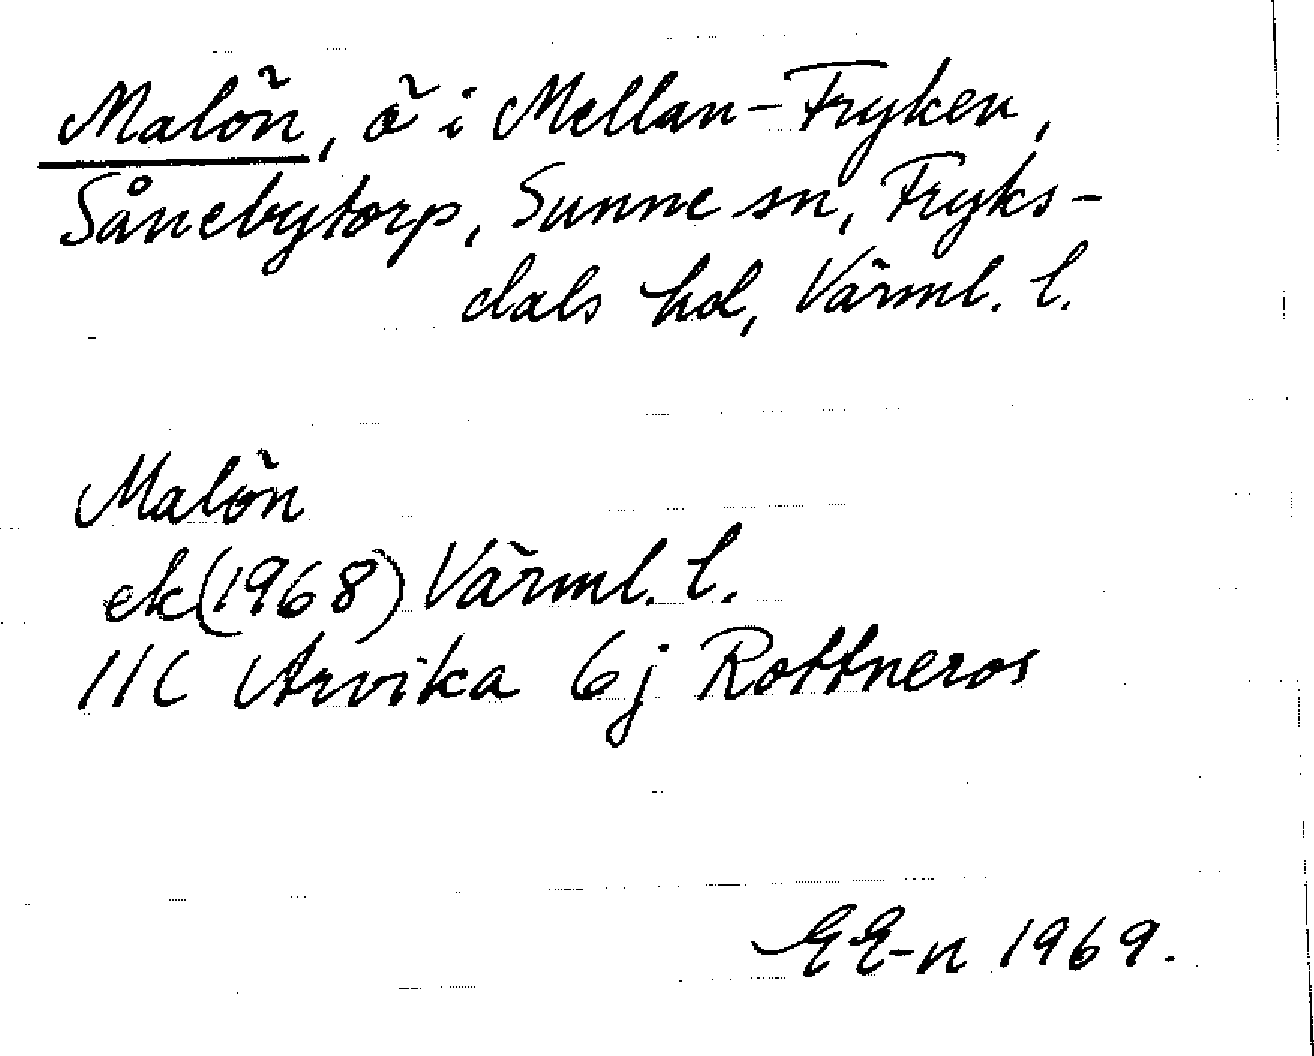 Malön, ö i Mellan-Fryken,
Sånebytorp, Sunne sn, Fryks-
dals hd, Värml. l.
Malön
ek (1968) Värml. l.
11C Arvika 6j Rottneros
EE-n 1969.